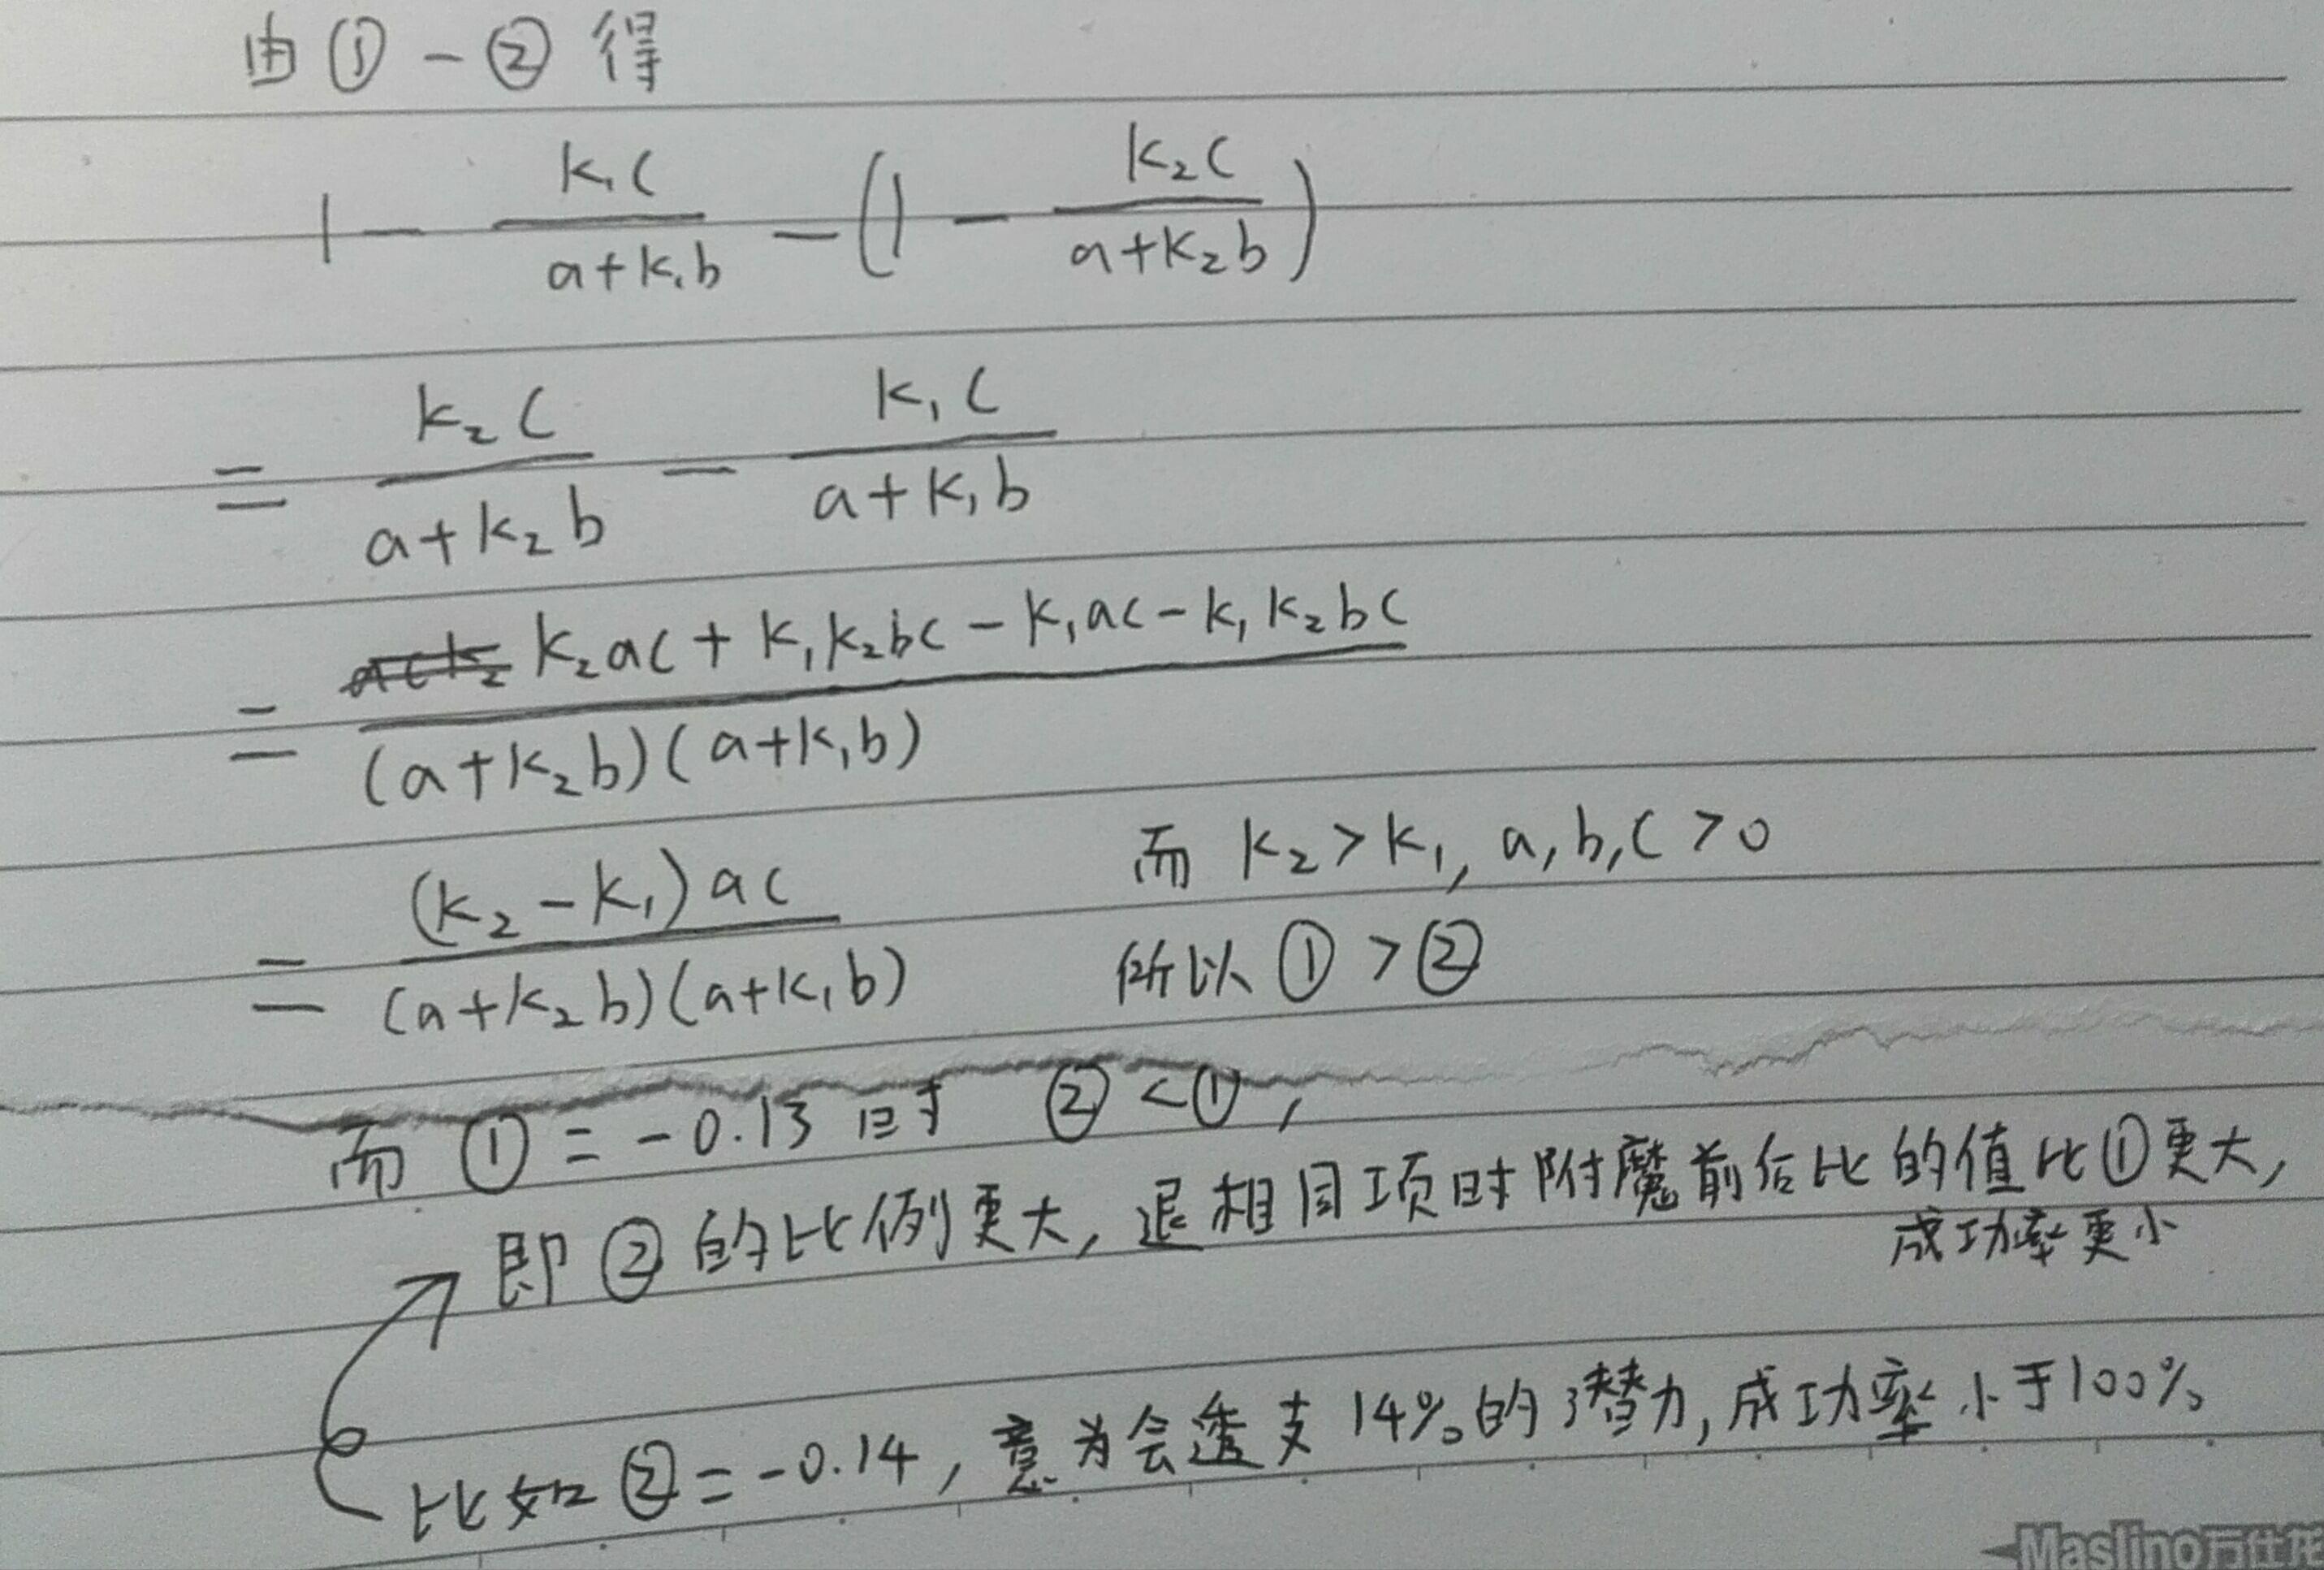 由①-②得
1 - k₁c/(a+k₁b) - (1 - k₂c/(a+k₂b))
= k₂c/(a+k₂b) - k₁c/(a+k₁b)
= (k₂ac+k₁k₂bc-k₁ac-k₁k₂bc)/((a+k₂b)(a+k₁b))
= (k₂-k₁)ac/((a+k₂b)(a+k₁b))
而 k₂>k₁, a,b,c>0
所以①>②
而①=-0.13时 ②<①,
即②的比例更大,退相同项时附魔前后比的值比①更大,
成功率更小
比如②=-0.14,意为会透支14%的潜力,成功率小于100%
Maslino万仕